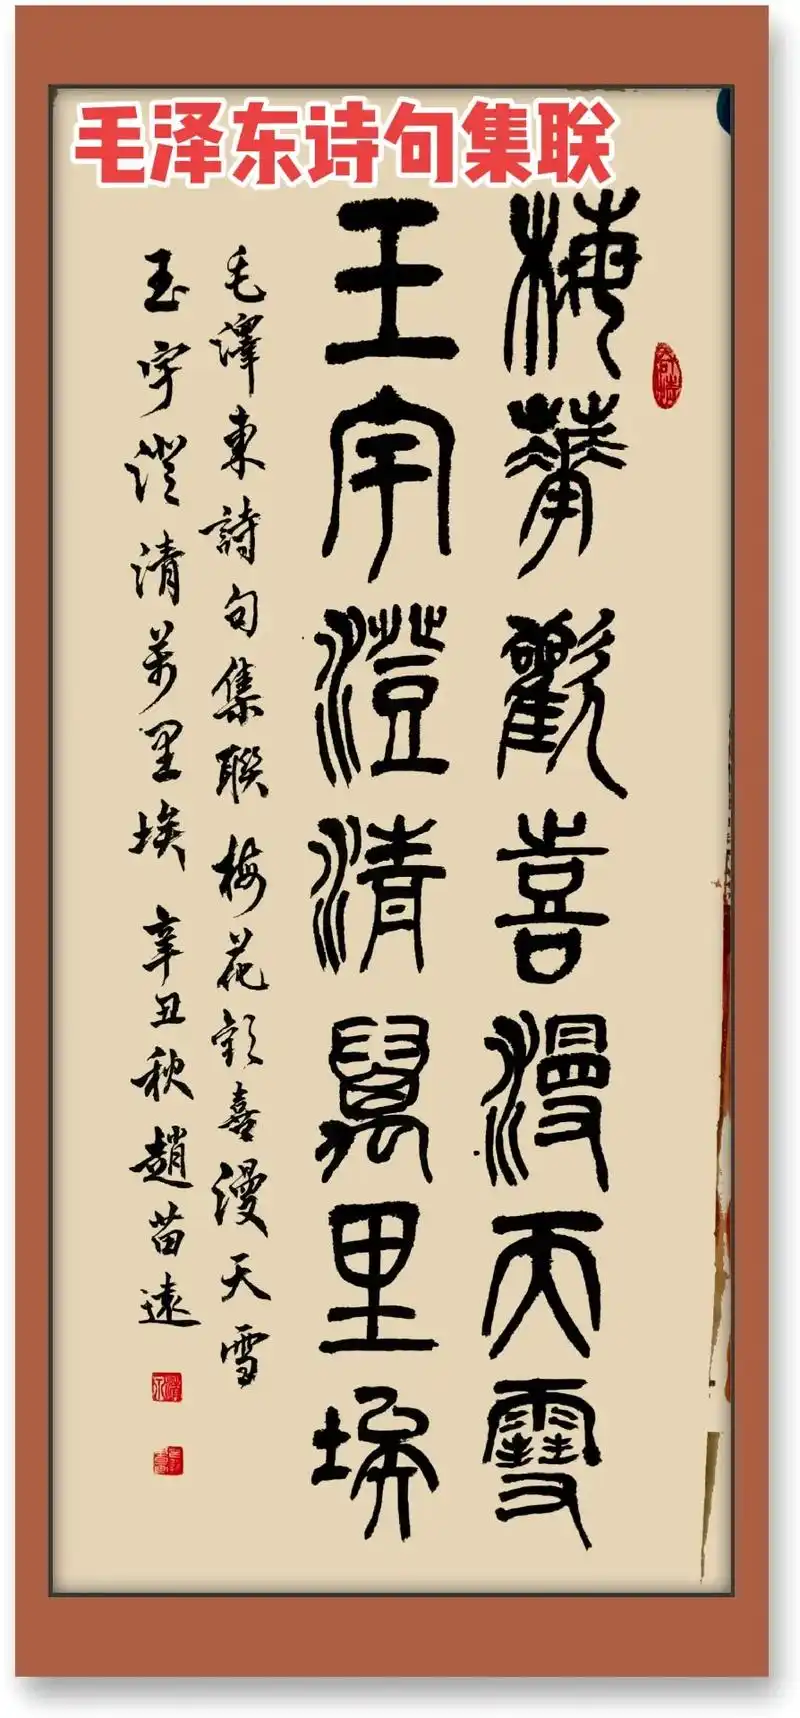 毛泽东诗句集联
梅華歡喜漫天雪
玉宇澄清萬里埃
毛澤東詩句集聯梅花歡喜漫天雪
玉宇澄清萬里埃辛丑秋趙苗遠